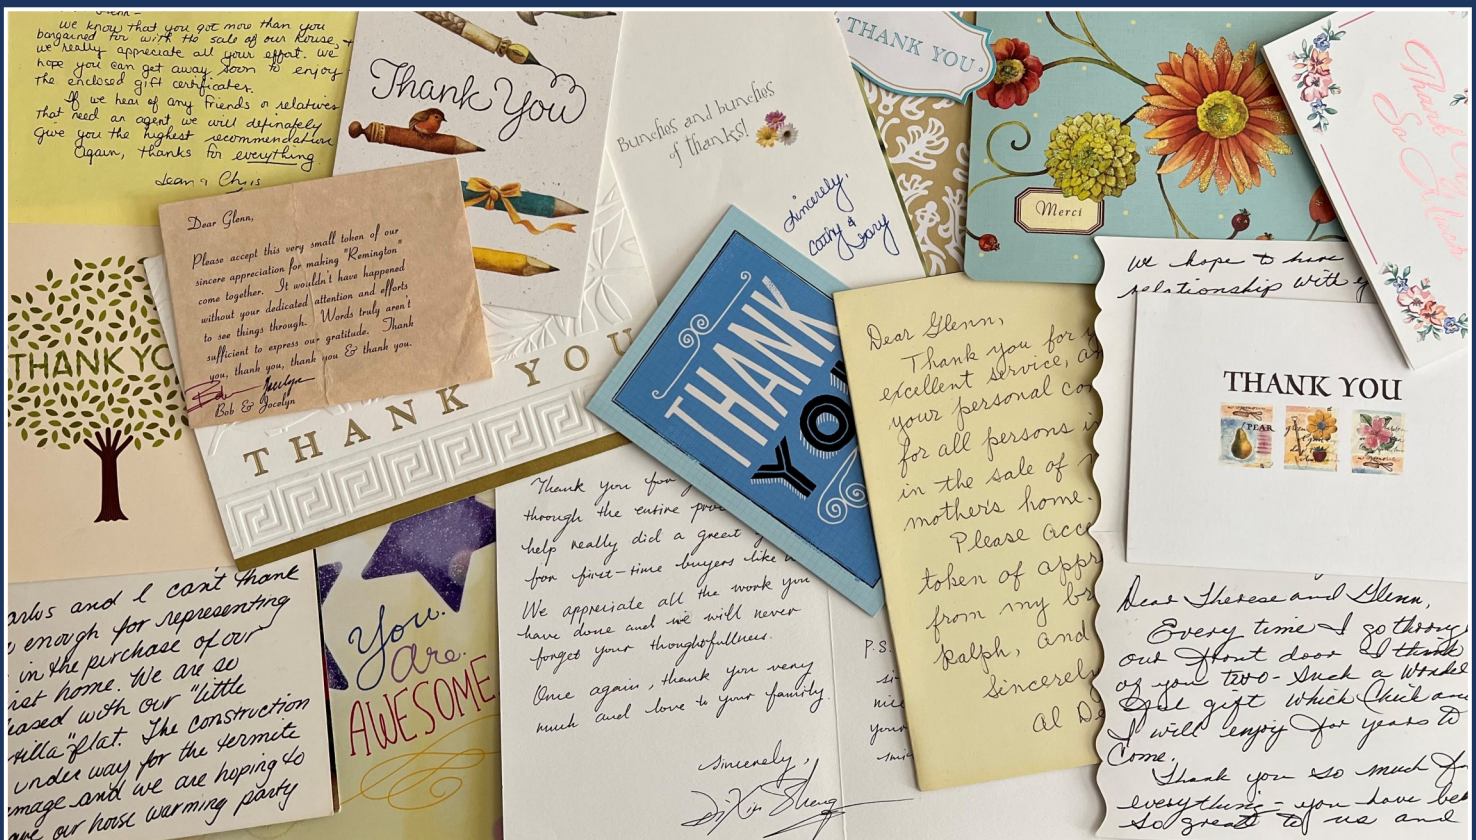 we know that you got more than you
bargained for with the sale of our house, +
we really appreciate all your effort. we
hope you can get away soon to enjoy
the enclosed gift certificates.
If we hear of any friends or relatives
that need an agent we will definately
give you the highest recommendation
Again, thanks for everything
Thank You
Bunches and bunches
of thanks!
Sincerely,
Cathy &
Gary
THANK YOU
Merci
Thank You
So Much
Dear Glenn,
Please accept this very small token of our
sincere appreciation for making "Remington"
come together. It wouldn't have happened
without your dedicated attention and efforts
to see things through. Words truly aren't
sufficient to express our gratitude. Thank
you, thank you, thank you & thank you.
Bob & Jocelyn
THANK YO
THANK YOU
THANK
YOU
Dear Glenn,
Thank you for
excellent service,
your personal
for all persons
in the sale of
mother's home.
Please
token of
from my
Ralph, and
Sincerely
Al
we hope to have
relationship with
THANK YOU
PEAR
and I can't thank
enough for representing
in the purchase of our
home. We are so
with our "little
flat. The construction
under way for the termite
and we are hoping to
our house warming party
You
are
AWESOME
Thank you for
through the entire
help really did a great
for first-time buyers like
We appreciate all the work you
have done and we will never
forget your thoughtfullness.
Once again, thank you very
much and love to your family.
Sincerely,
P.S.
Dear Therese and Glenn,
Every time I go through
our front door I think
of you two - Such a
gift which
I will enjoy for years to
Come.
Thank you so much for
everything - you have
so great to us and